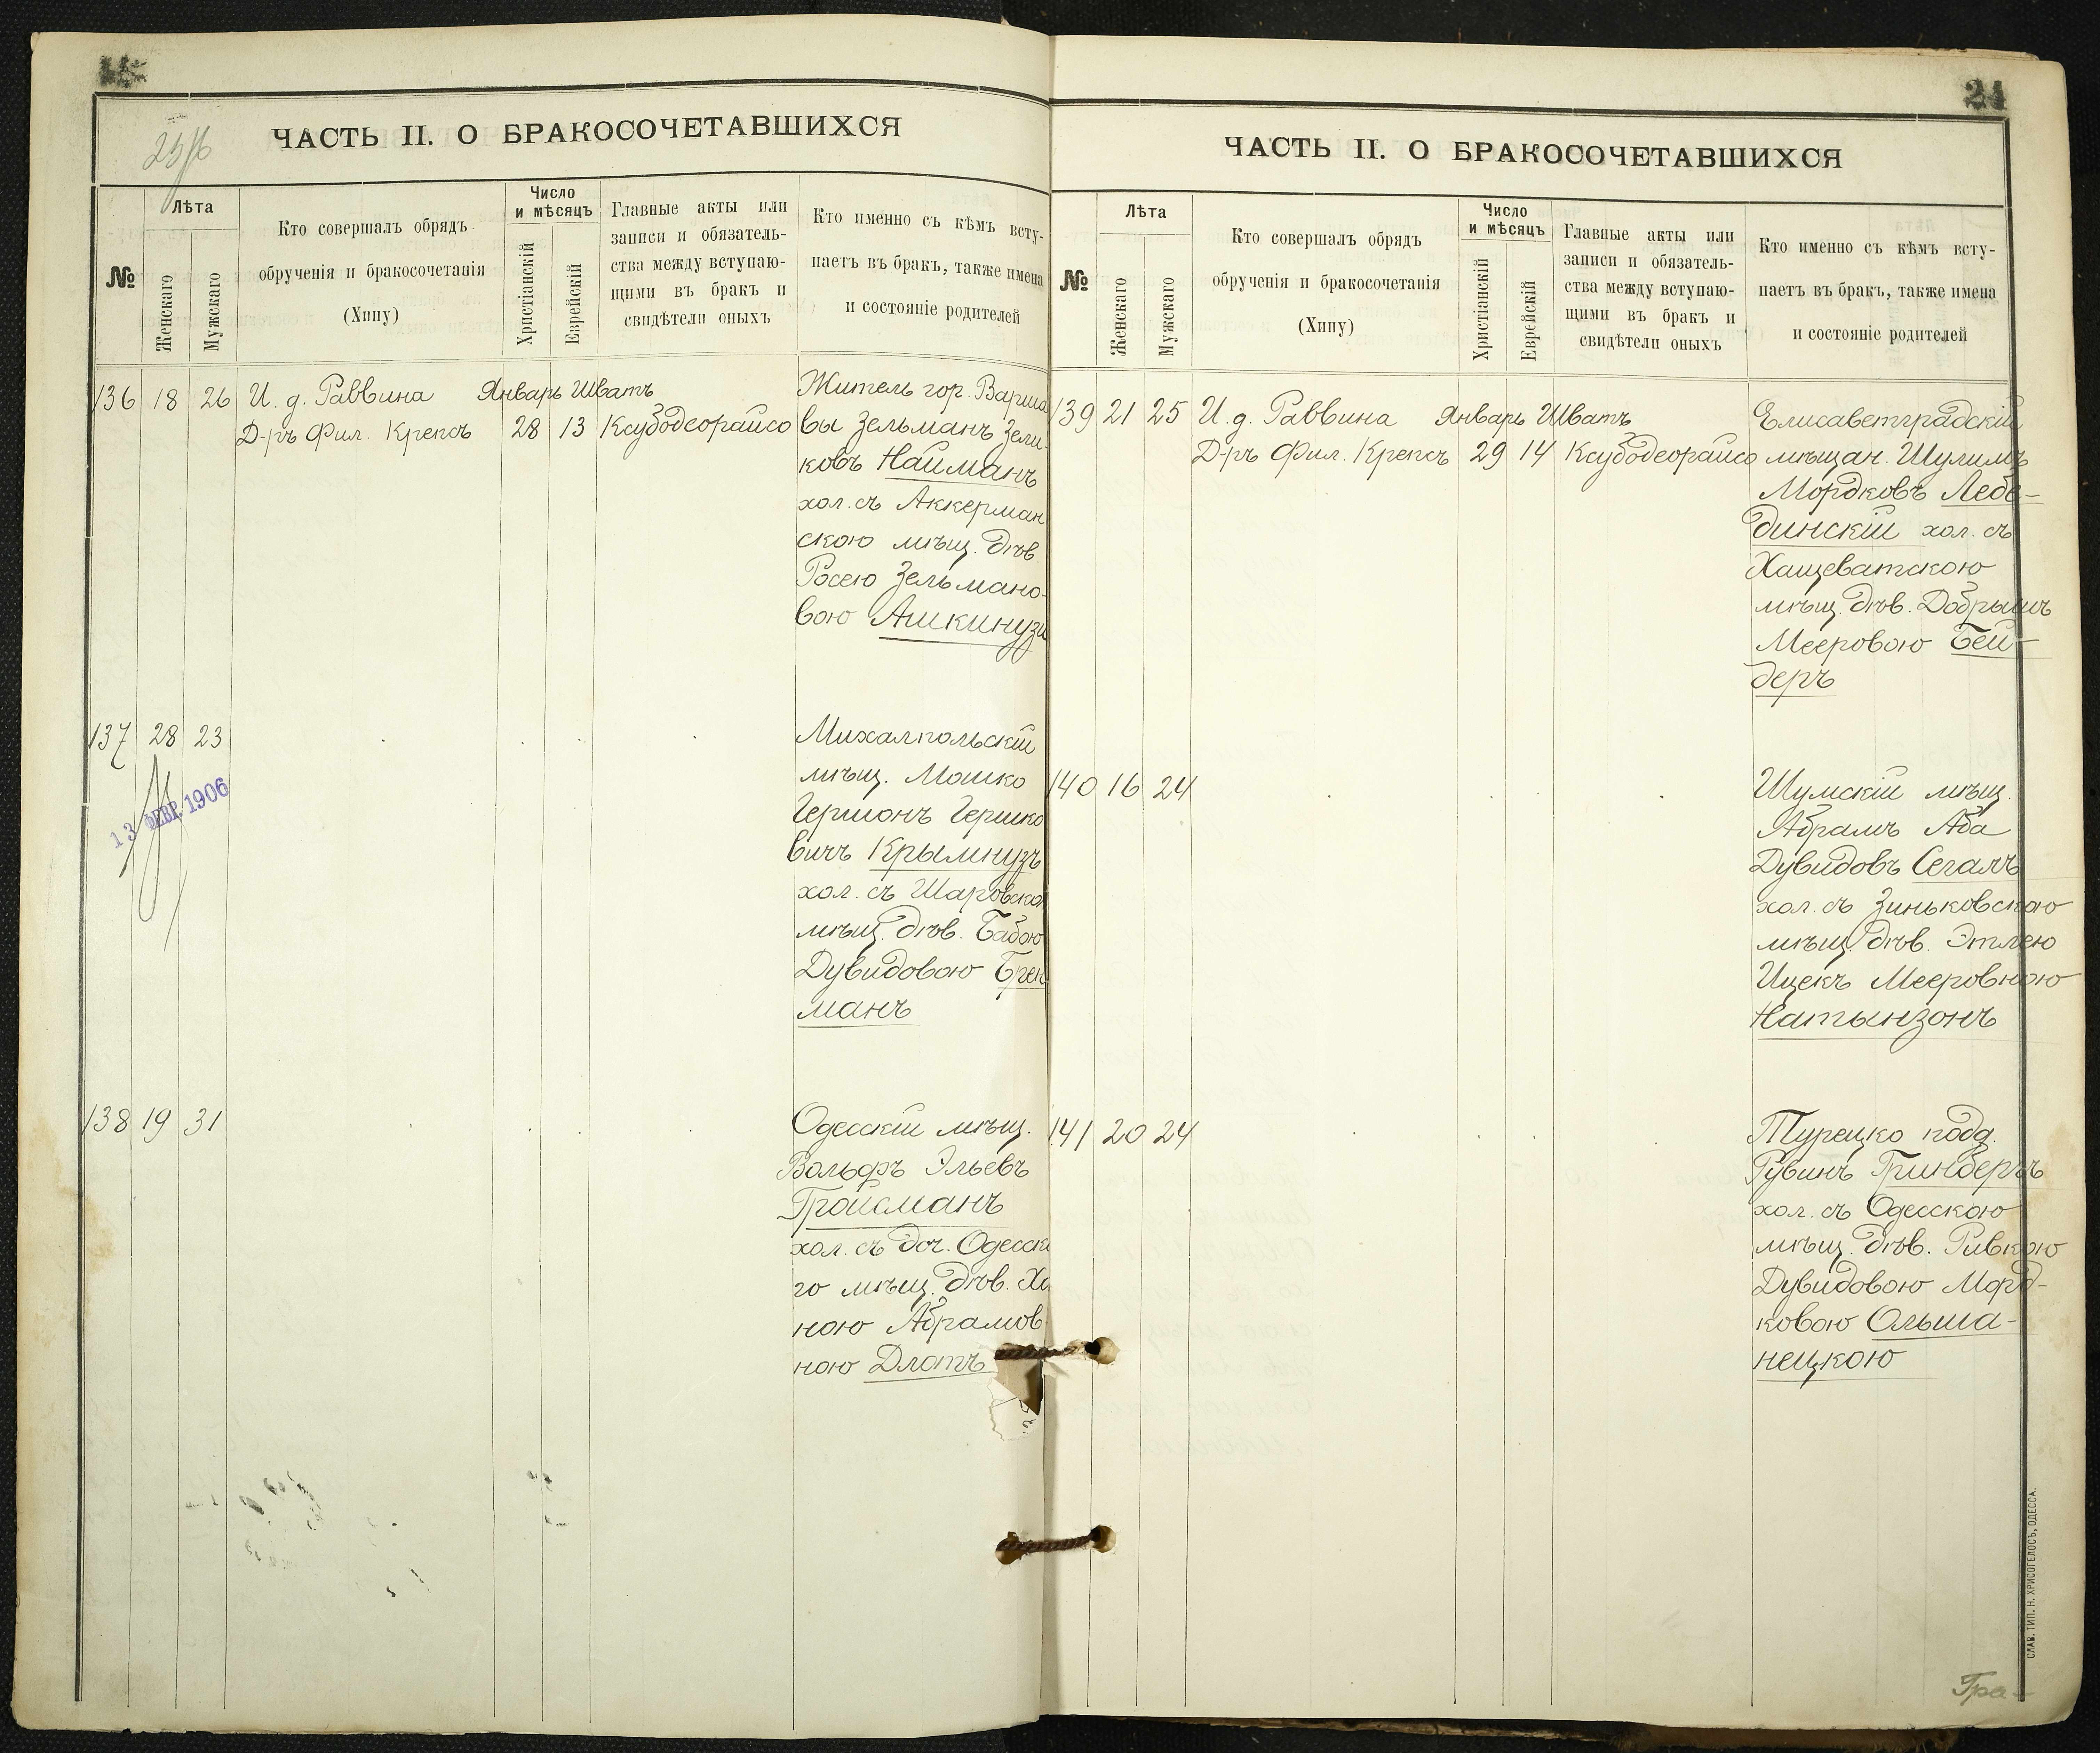 25/16
ЧАСТЬ II. О БРАКОСОЧЕТАВШИХСЯ
№
Лѣта
Женскаго
Мужскаго
Кто совершалъ обрядъ
обрученія и бракосочетанія
(Хипу)
Число
и мѣсяцъ
Христіанскій
Еврейскій
Главные акты или
записи и обязатель-
ства между вступаю-
щими въ бракъ и
свидѣтели оныхъ
Кто именно съ кѣмъ всту-
паетъ въ бракъ, также имена
и состояніе родителей
136 18 26 И. д. Раввина Январь Шватъ
Д-ръ Фил. Крепсъ 28 13 Ксубодеорайсо
Житель гор. Варша
вы Зельманъ Зели-
ковъ Найманъ
хол. съ Аккерман
скою мѣщ. дѣв.
Росею Зельмано-
вою Ашкинузи
137 28 23
13 ФЕВР. 1906
Михалпольскій
мѣщ. Мошко
Гершонъ Гершко
вичъ Крымнузъ
хол. съ Шаровско
мѣщ. дѣв. Бабою
Дувидовою Брек
манъ
138 19 31
Одесскій мѣщ.
Вольфъ Эльевъ
Гройсманъ
хол. съ доч. Одесск
го мѣщ. дѣв. Ха
ною Абрамов
ною Длотъ
24
ЧАСТЬ II. О БРАКОСОЧЕТАВШИХСЯ
№
Лѣта
Женскаго
Мужскаго
Кто совершалъ обрядъ
обрученія и бракосочетанія
(Хипу)
Число
и мѣсяцъ
Христіанскій
Еврейскій
Главные акты или
записи и обязатель-
ства между вступаю-
щими въ бракъ и
свидѣтели оныхъ
Кто именно съ кѣмъ всту-
паетъ въ бракъ, также имена
и состояніе родителей
139 21 25 И. д. Раввина Январь Шватъ
Д-ръ Фил. Крепсъ 29 14 Ксубодеорайсо
Елисаветградскій
мѣщан. Шулимъ
Мордковъ Лебе-
динскій хол. съ
Хащеватскою
мѣщ. дѣв. Добрышъ
Мееровою Бей-
деръ
140 16 24
Шумскій мѣщ.
Абрамъ Аба
Дувидовъ Сегалъ
хол. съ Зиньковскою
мѣщ. дѣв. Этлею
Ицекъ Мееровною
Натынзонъ
141 20 24
Турецко подд.
Рувинъ Гринбергъ
хол. съ Одесскою
мѣщ. дѣв. Ривкою
Дувидовою Морд-
ковою Ольша-
нецкою
СЛАВ. ТИП. Н. ХРИСОГЕЛОСЪ, ОДЕССА.